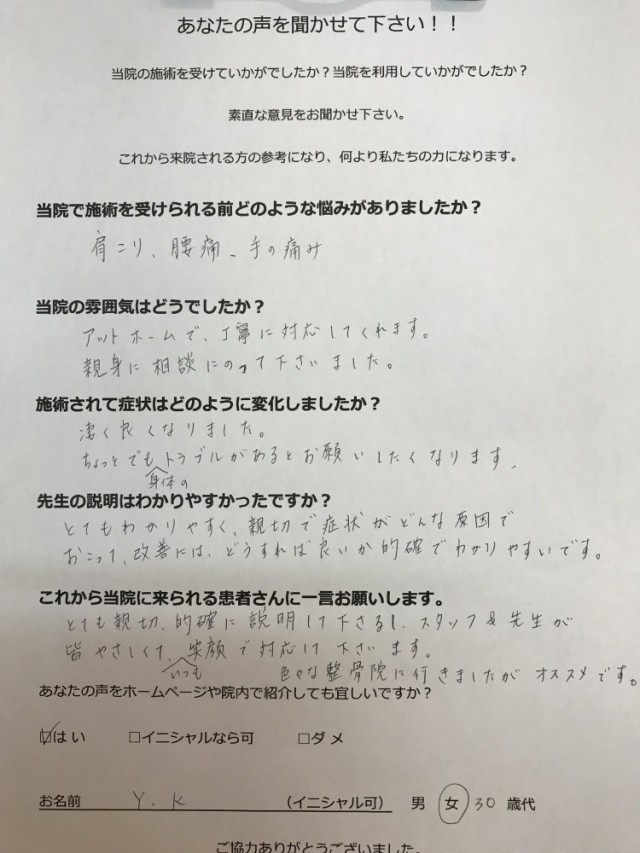 あなたの声を聞かせて下さい！！
当院の施術を受けていかがでしたか？当院を利用していかがでしたか？
素直な意見をお聞かせ下さい。
これから来院される方の参考になり、何より私たちの力になります。
当院で施術を受けられる前どのような悩みがありましたか？
肩こり、腰痛、手の痛み
当院の雰囲気はどうでしたか？
アットホームで、丁寧に対応してくれます。
親身に相談にのって下さいました。
施術されて症状はどのように変化しましたか？
凄く良くなりました。
ちょっとでもトラブルがあるとお願いしたくなります。
身体の
先生の説明はわかりやすかったですか？
とてもわかりやすく、親切で症状がどんな原因で
おこって、改善には、どうすれば良いか的確でわかりやすいです。
これから当院に来られる患者さんに一言お願いします。
とても親切、的確に説明して下さるし、スタッフ&先生が
皆やさしくて、笑顔で対応して下さいます。
いつも
色々な整骨院に行きましたがオススメです。
あなたの声をホームページや院内で紹介しても宜しいですか？
☑はい □イニシャルなら可 □ダメ
お名前 Y.K （イニシャル可） 男 女 30 歳代
ご協力ありがとうございました。